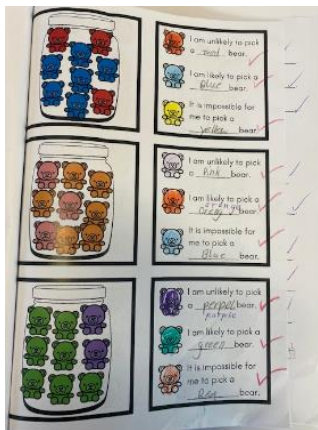 I am unlikely to pick
a red bear.
I am likely to pick a
Blue bear.
It is impossible for
me to pick a
yellow bear.
I am unlikely to pick
a Pink bear.
I am likely to pick a
orange
bear.
It is impossible for
me to pick a
Blue bear.
I am unlikely to pick
a perpol bear.
purple
I am likely to pick a
green bear.
It is impossible for
me to pick a
bear.